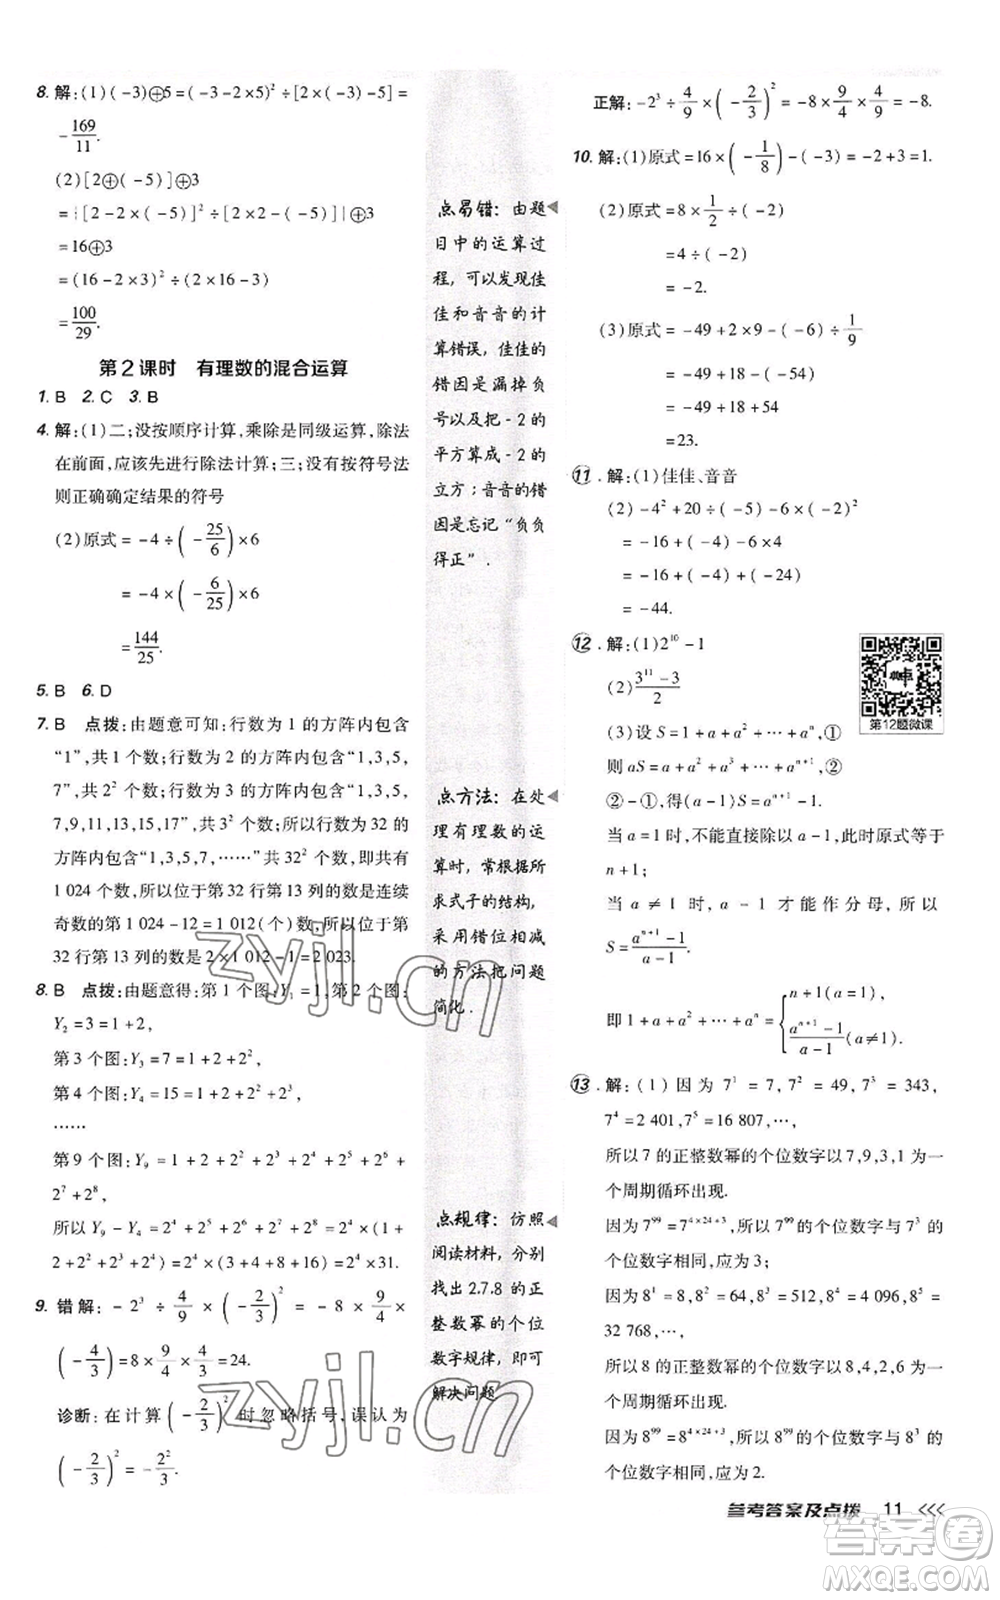 8. 解:(1)(-3)⊕5=(-3-2×5)²÷[2×(-3)-5]=
-169/11.
(2)[2⊕(-5)]⊕3
={[2-2×(-5)]²÷[2×2-(-5)]}⊕3
=16⊕3
=(16-2×3)²÷(2×16-3)
=100/29.
第2课时 有理数的混合运算
1. B 2. C 3. B
4. 解:(1)二;没按顺序计算,乘除是同级运算,除法
在前面,应该先进行除法计算;三;没有按符号法
则正确确定结果的符号
(2)原式=-4÷(-25/6)×6
=-4×(-6/25)×6
=144/25.
5. B 6. D
7. B 点拨:由题意可知:行数为1的方阵内包含
“1”,共1个数;行数为2的方阵内包含“1,3,5,
7”,共2²个数;行数为3的方阵内包含“1,3,5,
7,9,11,13,15,17”,共3²个数;所以行数为32的
方阵内包含“1,3,5,7,……”共32²个数,即共有
1 024个数,所以位于第32行第13列的数是连续
奇数的第1 024-12=1 012(个)数,所以位于第
32行第13列的数是2×1 012-1=2 023.
8. B 点拨:由题意得:第1个图:Y₁=1,第2个图:
Y₂=3=1+2,
第3个图:Y₃=7=1+2+2²,
第4个图:Y₄=15=1+2+2²+2³,
……
第9个图:Y₉=1+2+2²+2³+2⁴+2⁵+2⁶+
2⁷+2⁸,
所以Y₉-Y₄=2⁴+2⁵+2⁶+2⁷+2⁸=2⁴×(1+
2+2²+2³+2⁴)=2⁴×31.
9. 错解:-2³÷4/9×(-2/3)²=-8×9/4×
(-4/3)=8×9/4×4/3=24.
诊断:在计算(-2/3)²时忽略括号,误认为
(-2/3)²=-2²/3.
点易错:由题
目中的运算过
程,可以发现佳
佳和音音的计
算错误,佳佳的
错因是漏掉负
号以及把-2的
平方算成-2的
立方;音音的错
因是忘记“负负
得正”.
点方法:在处
理有理数的运
算时,常根据所
求式子的结构,
采用错位相减
的方法把问题
简化.
点规律:仿照
阅读材料,分别
找出2.7.8的正
整数幂的个位
数字规律,即可
解决问题
正解:-2³÷4/9×(-2/3)²=-8×9/4×4/9=-8.
10. 解:(1)原式=16×(-1/8)-(-3)=-2+3=1.
(2)原式=8×1/2÷(-2)
=4÷(-2)
=-2.
(3)原式=-49+2×9-(-6)÷1/9
=-49+18-(-54)
=-49+18+54
=23.
11. 解:(1)佳佳、音音
(2)-4²+20÷(-5)-6×(-2)²
=-16+(-4)-6×4
=-16+(-4)+(-24)
=-44.
12. 解:(1)2¹⁰-1
(2)(3¹¹-3)/2
第12题微课
(3)设S=1+a+a²+…+aⁿ,①
则aS=a+a²+a³+…+aⁿ⁺¹,②
②-①,得(a-1)S=aⁿ⁺¹-1.
当a=1时,不能直接除以a-1,此时原式等于
n+1;
当a≠1时,a-1才能作分母,所以
S=(aⁿ⁺¹-1)/(a-1).
即1+a+a²+…+aⁿ={n+1(a=1),
(aⁿ⁺¹-1)/(a-1)(a≠1).
13. 解:(1)因为7¹=7,7²=49,7³=343,
7⁴=2 401,7⁵=16 807,…,
所以7的正整数幂的个位数字以7,9,3,1为一
个周期循环出现.
因为7⁹⁹=7⁴ˣ²⁴⁺³,所以7⁹⁹的个位数字与7³的
个位数字相同,应为3;
因为8¹=8,8²=64,8³=512,8⁴=4 096,8⁵=
32 768,…,
所以8的正整数幂的个位数字以8,4,2,6为一
个周期循环出现.
因为8⁹⁹=8⁴ˣ²⁴⁺³,所以8⁹⁹的个位数字与8³的
个位数字相同,应为2.
参考答案及点拨 11
zyjl.cn
zyjl.cn
答案圈
MXQE.COM